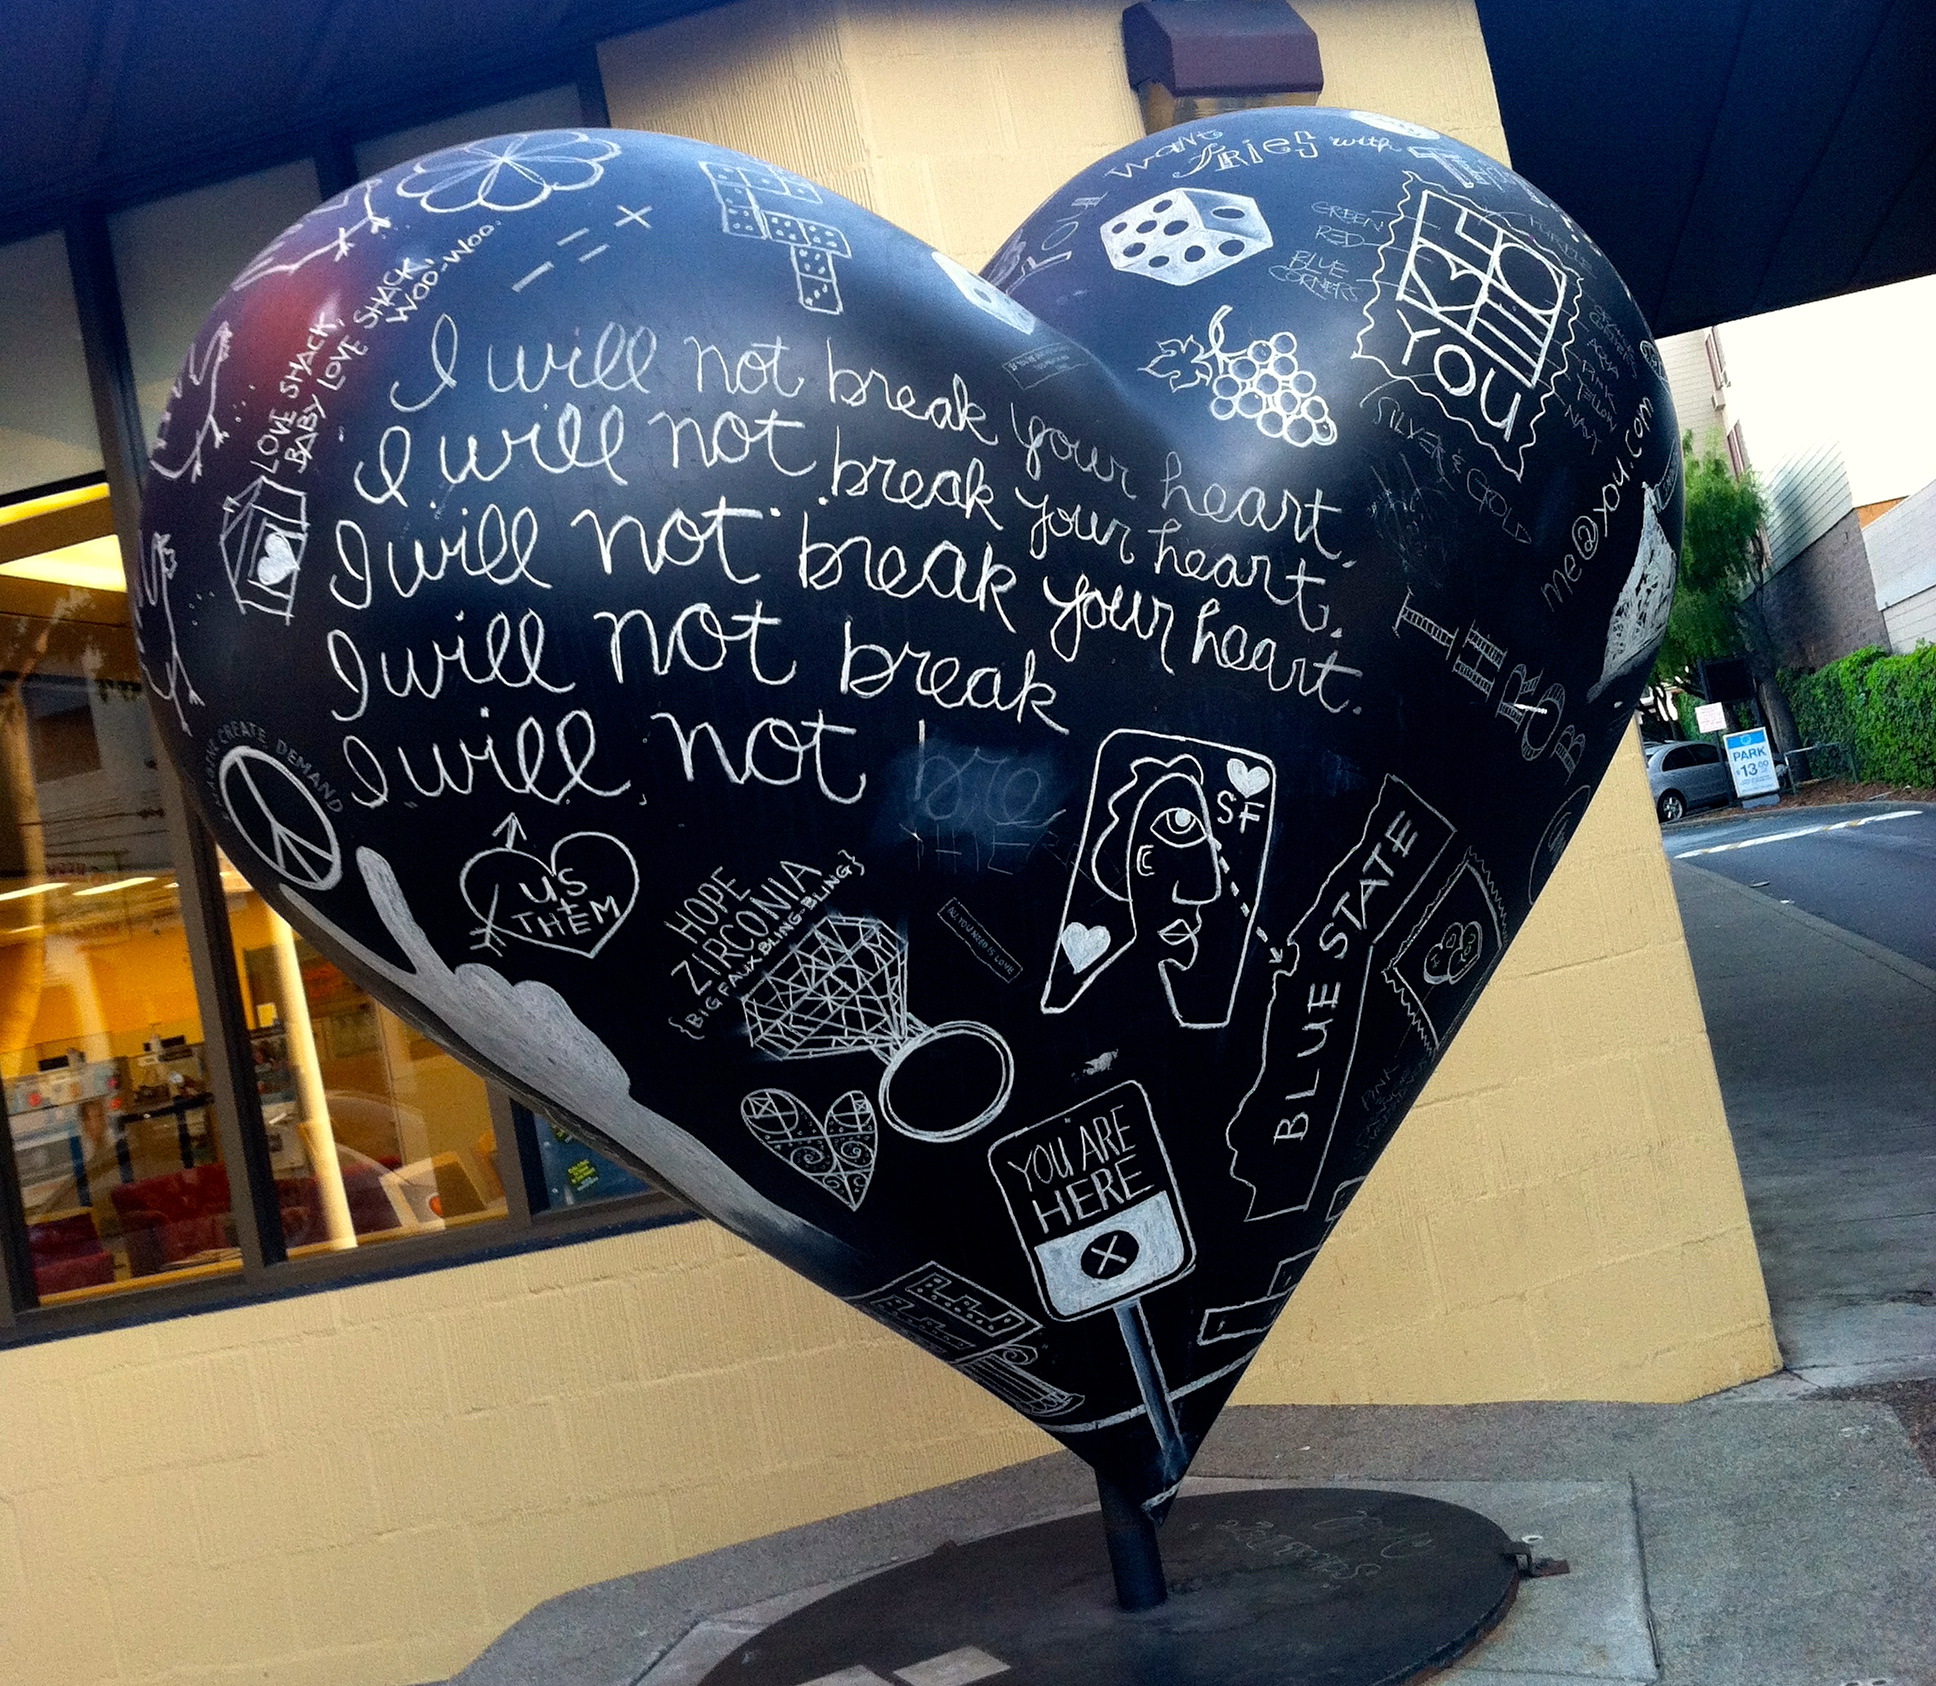 WANT fRiEs with
LOVE SHACK,
BABY LOVE SHACK,
WOO-WOO.
GREEN
RED
BLUE
CORNERS
YOU
SILVER & GOLD
me@you.com
I will not break your heart.
I will not break your heart.
I will not break your heart.
I will not break
I will not bre
CREATE DEMAND
US
+
THEM
HOPE
ZIRCONIA
{BIG FAUX BLING-BLING}
ALL YOU NEED IS LOVE
SF
BLUE STATE
YOU ARE
HERE
X
PINK
PARK
$13.00